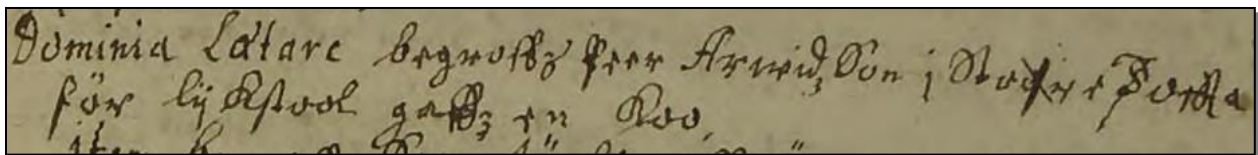 Dominica Lætare begroffz Peer Arwidz Son i Stoore Torffa
för lijkstool gaffz en Koo,